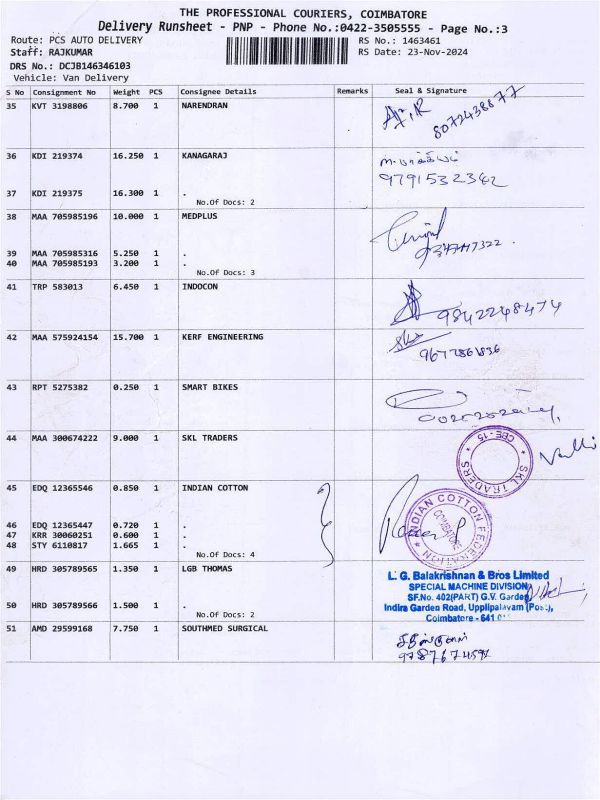 THE PROFESSIONAL COURIERS, COIMBATORE
Delivery Runsheet - PNP - Phone No.:0422-3505555 - Page No.:3
Route: PCS AUTO DELIVERY
RS No.: 1463461
Staff: RAJKUMAR
RS Date: 23-Nov-2024
DRS No.: DCJB146346103
Vehicle: Van Delivery
S No Consignment No Weight PCS Consignee Details Remarks Seal & Signature
35 KVT 3198806 8.700 1 NARENDRAN
8072438877
36 KDI 219374 16.250 1 KANAGARAJ
9791532342
37 KDI 219375 16.300 1 .
No.Of Docs: 2
38 MAA 705985196 10.000 1 MEDPLUS
39 MAA 705985316 5.250 1 .
40 MAA 705985193 3.200 1 .
No.Of Docs: 3
41 TRP 583013 6.450 1 INDOCON
9842248474
42 MAA 575924154 15.700 1 KERF ENGINEERING
43 RPT 5275382 0.250 1 SMART BIKES
44 MAA 300674222 9.000 1 SKL TRADERS
SKL TRADERS
CBE-15
45 EDQ 12365546 0.850 1 INDIAN COTTON
INDIAN COTTON FEDERATION
COIMBATORE
46 EDQ 12365447 0.720 1 .
47 KRR 30060251 0.600 1 .
48 STY 6110817 1.665 1 .
No.Of Docs: 4
49 HRD 305789565 1.350 1 LGB THOMAS
L. G. Balakrishnan & Bros Limited
SPECIAL MACHINE DIVISION
SF.No. 402(PART) G.V. Garden
Indira Garden Road, Upplipalayam (Post),
Coimbatore - 641
50 HRD 305789566 1.500 1 .
No.Of Docs: 2
51 AMD 29599168 7.750 1 SOUTHMED SURGICAL